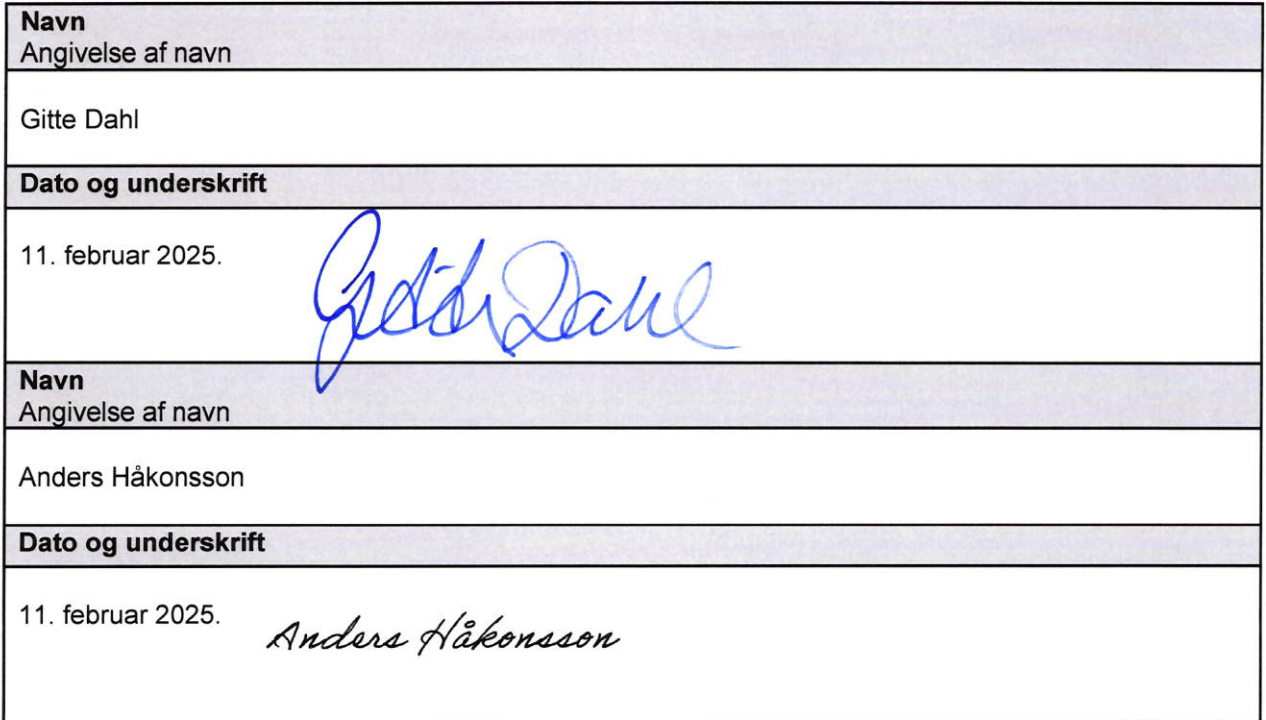 Navn
Angivelse af navn
Gitte Dahl
Dato og underskrift
11. februar 2025.
Gitte Dahl
Navn
Angivelse af navn
Anders Håkonsson
Dato og underskrift
11. februar 2025.
Anders Håkonsson